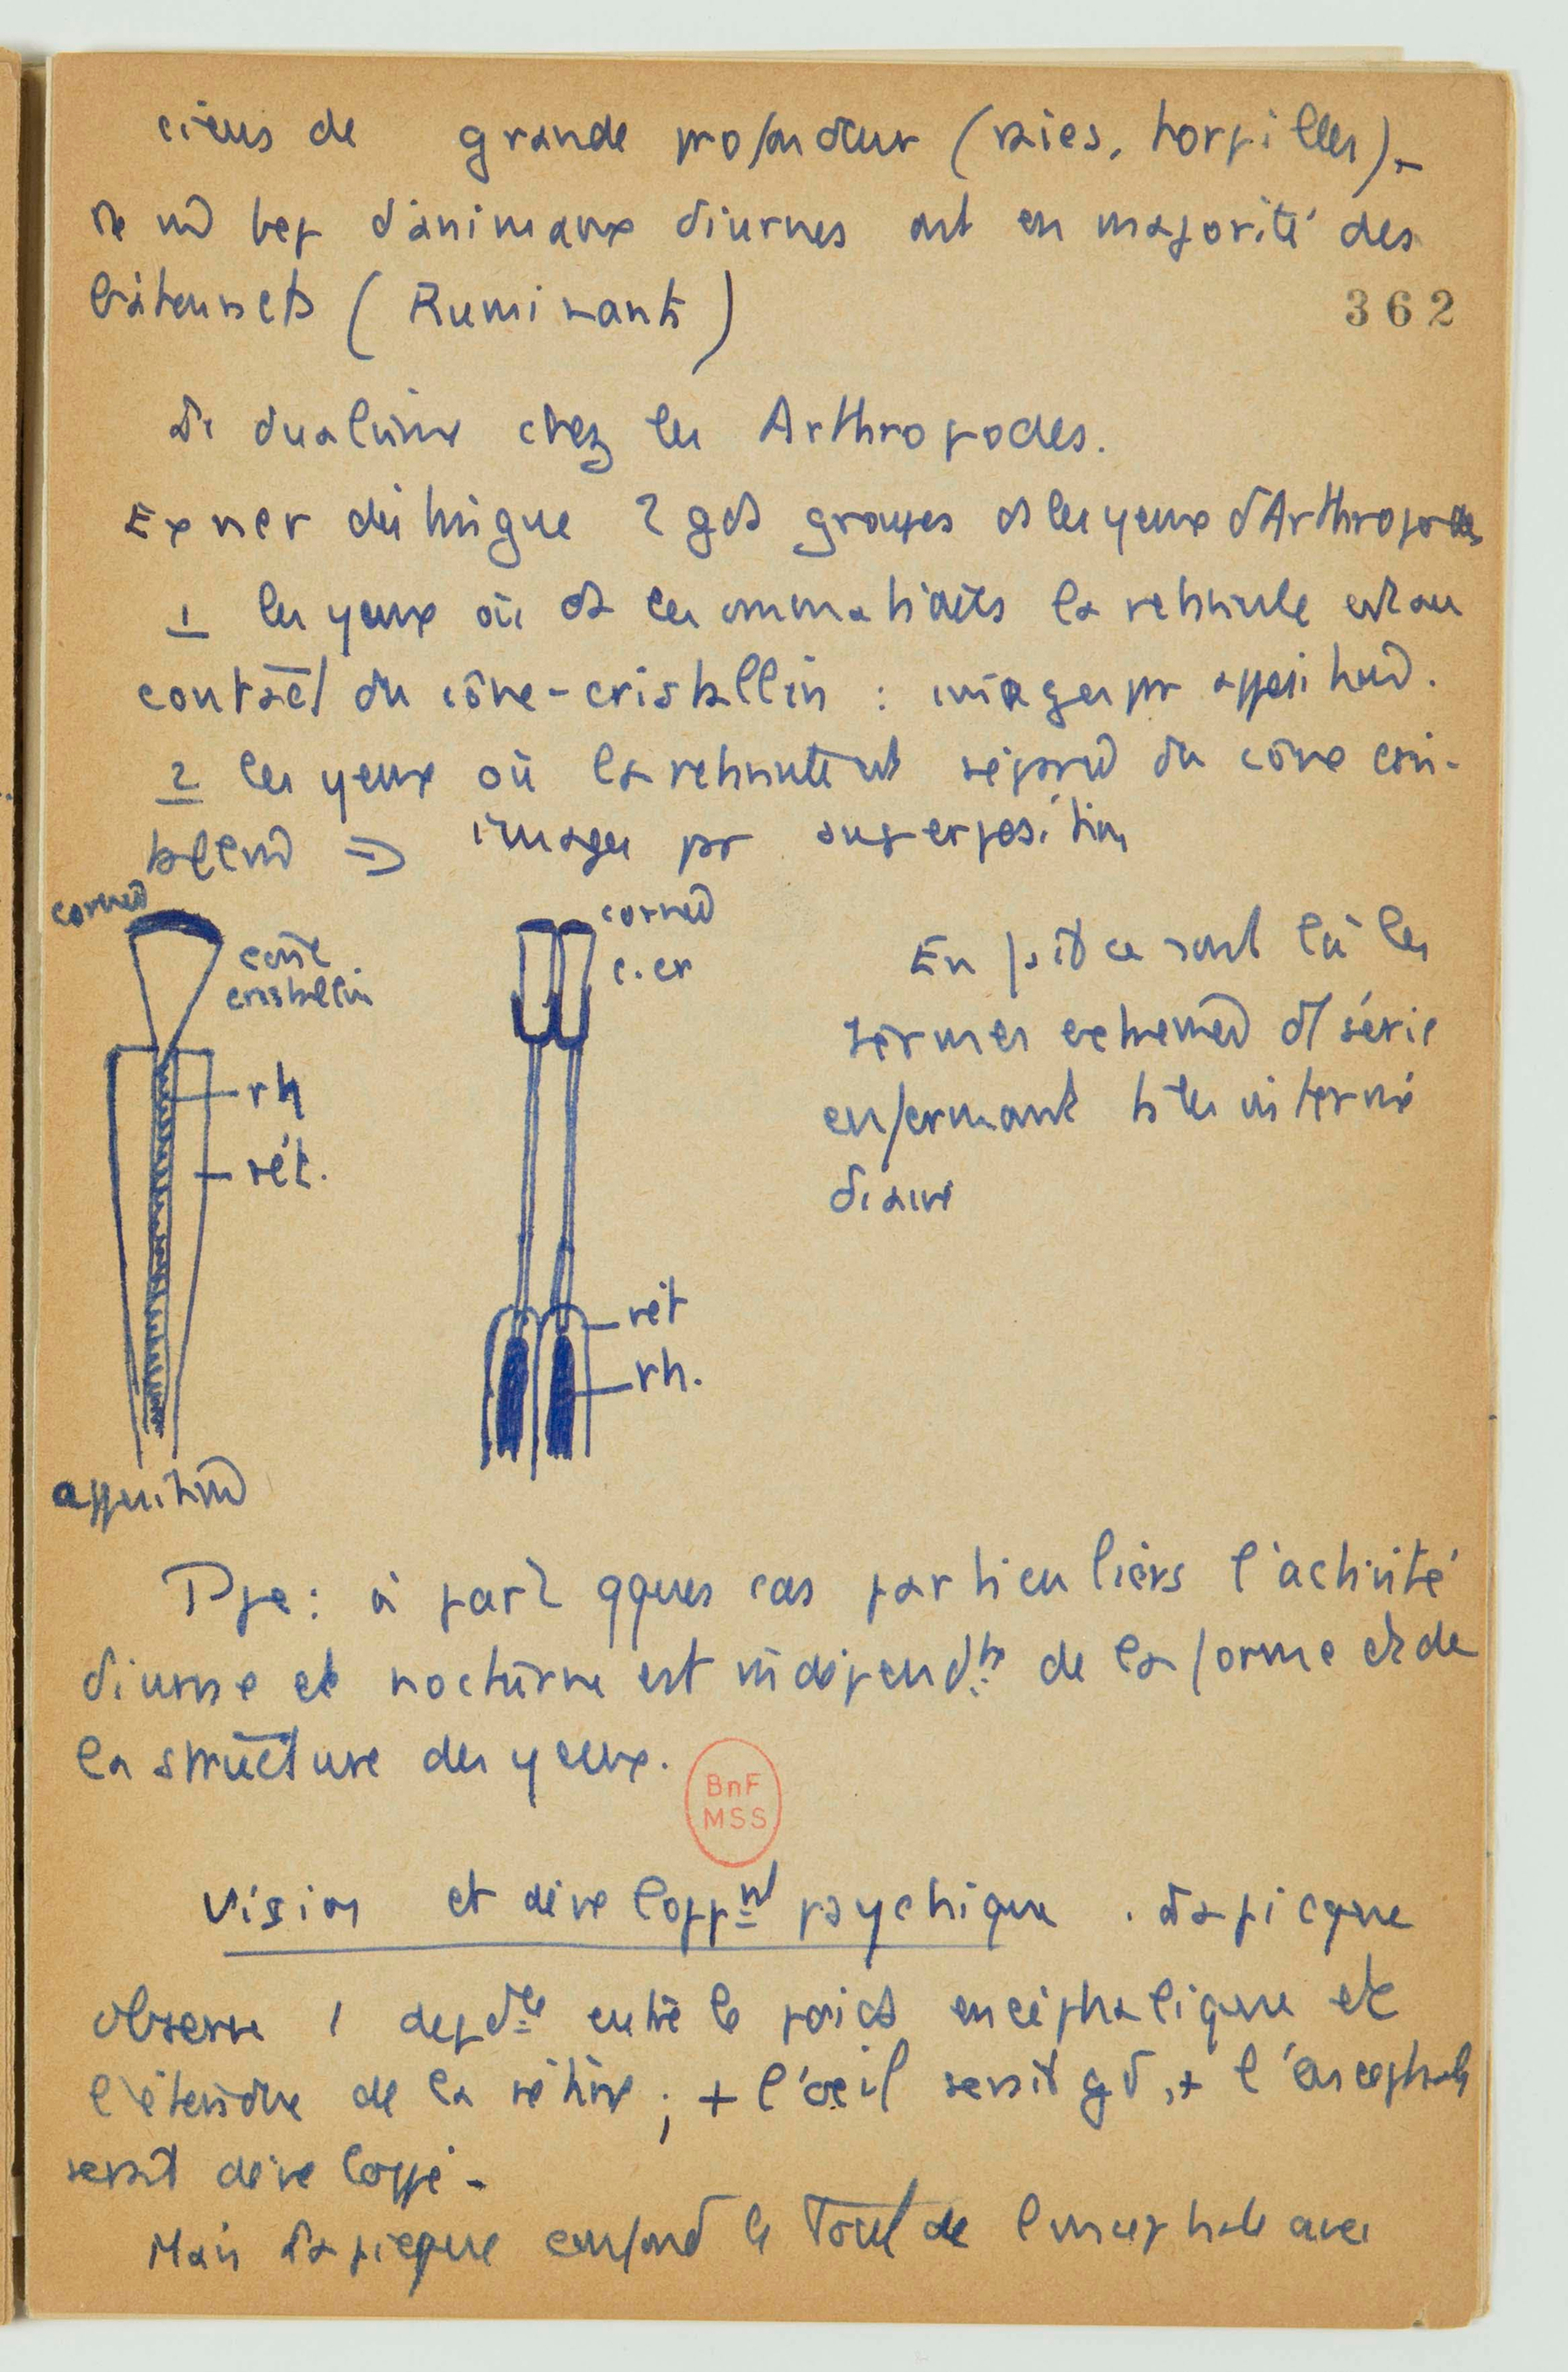 cieux de grande profondeur (raies, torpilles).-
de bep d'animaux diurnes ont en majorité des
bâtonnets (Ruminants)
362
dualisme chez les Arthropodes.
Exner distingue 2 gds groupes ds les yeux d'Arthropodes
1 les yeux où ds les ommatidies la rétinule est au
contact du cône-cristallin : images pr apposition.
2 les yeux où la rétinule est séparée du cône cris-
tallin => images pr superposition
cornée
cône
cristallin
rh
rét.
apposition
cornée
c. cr
rét
rh.
En fait ce sont là les
termes extrêmes d'1 série
enfermant ts les intermé
diaires
Ppe : à part qques cas particuliers l'activité
diurne et nocturne est indépendte de la forme et de
la structure des yeux.
BnF
MSS
Vision et développnt psychique . Lapicque
observe 1 depdce entre le poids encéphalique et
l'étendue de la rétine ; + l'oeil serait gd, + l'encéphale
serait développé -
Mais Lapicque confond le Tout de l'encéphale avec